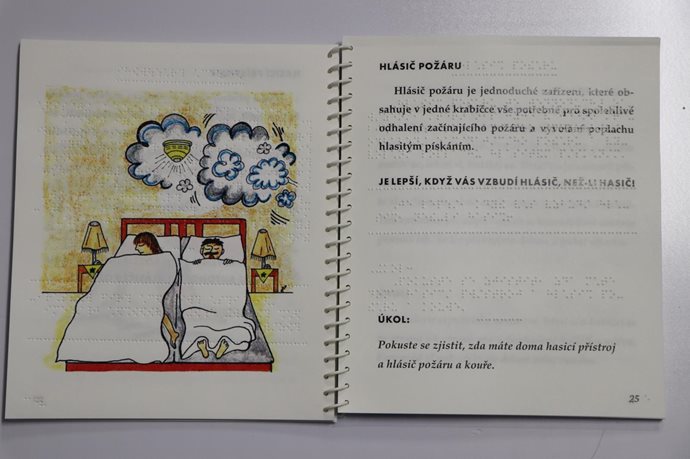 HLÁSIČ POŽÁRU
Hlásič požáru je jednoduché zařízení, které ob-
sahuje v jedné krabičce vše potřebné pro spolehlivé
odhalení začínajícího požáru a vyvolání poplachu
hlasitým pískáním.
JE LEPŠÍ, KDYŽ VÁS VZBUDÍ HLÁSIČ, NEŽ-LI HASIČI
ÚKOL:
Pokuste se zjistit, zda máte doma hasicí přístroj
a hlásič požáru a kouře.
25